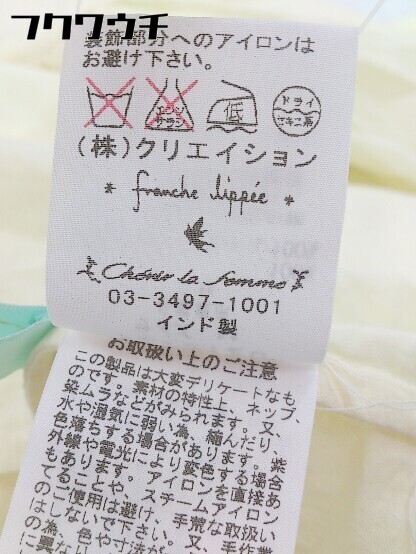 フクワウチ
装飾部分へのアイロンは
お避け下さい。
エンソ
サラシ
低
ドライ
セキユ系
(株)クリエイション
* franche lippée *
Chérir la femme
03-3497-1001
インド製
お取扱い上のご注意
この製品は大変デリケートなも
のです。素材の特性上、ネップ、
染ムラなどがみられます。又、
水や湿気に弱い為、縮んだり、
色落ちする場合があります。紫
外線や電光により変色する場合
もあります。アイロンを直接あ
てることや、スチームアイロン
のご使用は避け、手荒な取扱い
はしないで下さい。又、手作業
の為、色や寸法が
に異なり